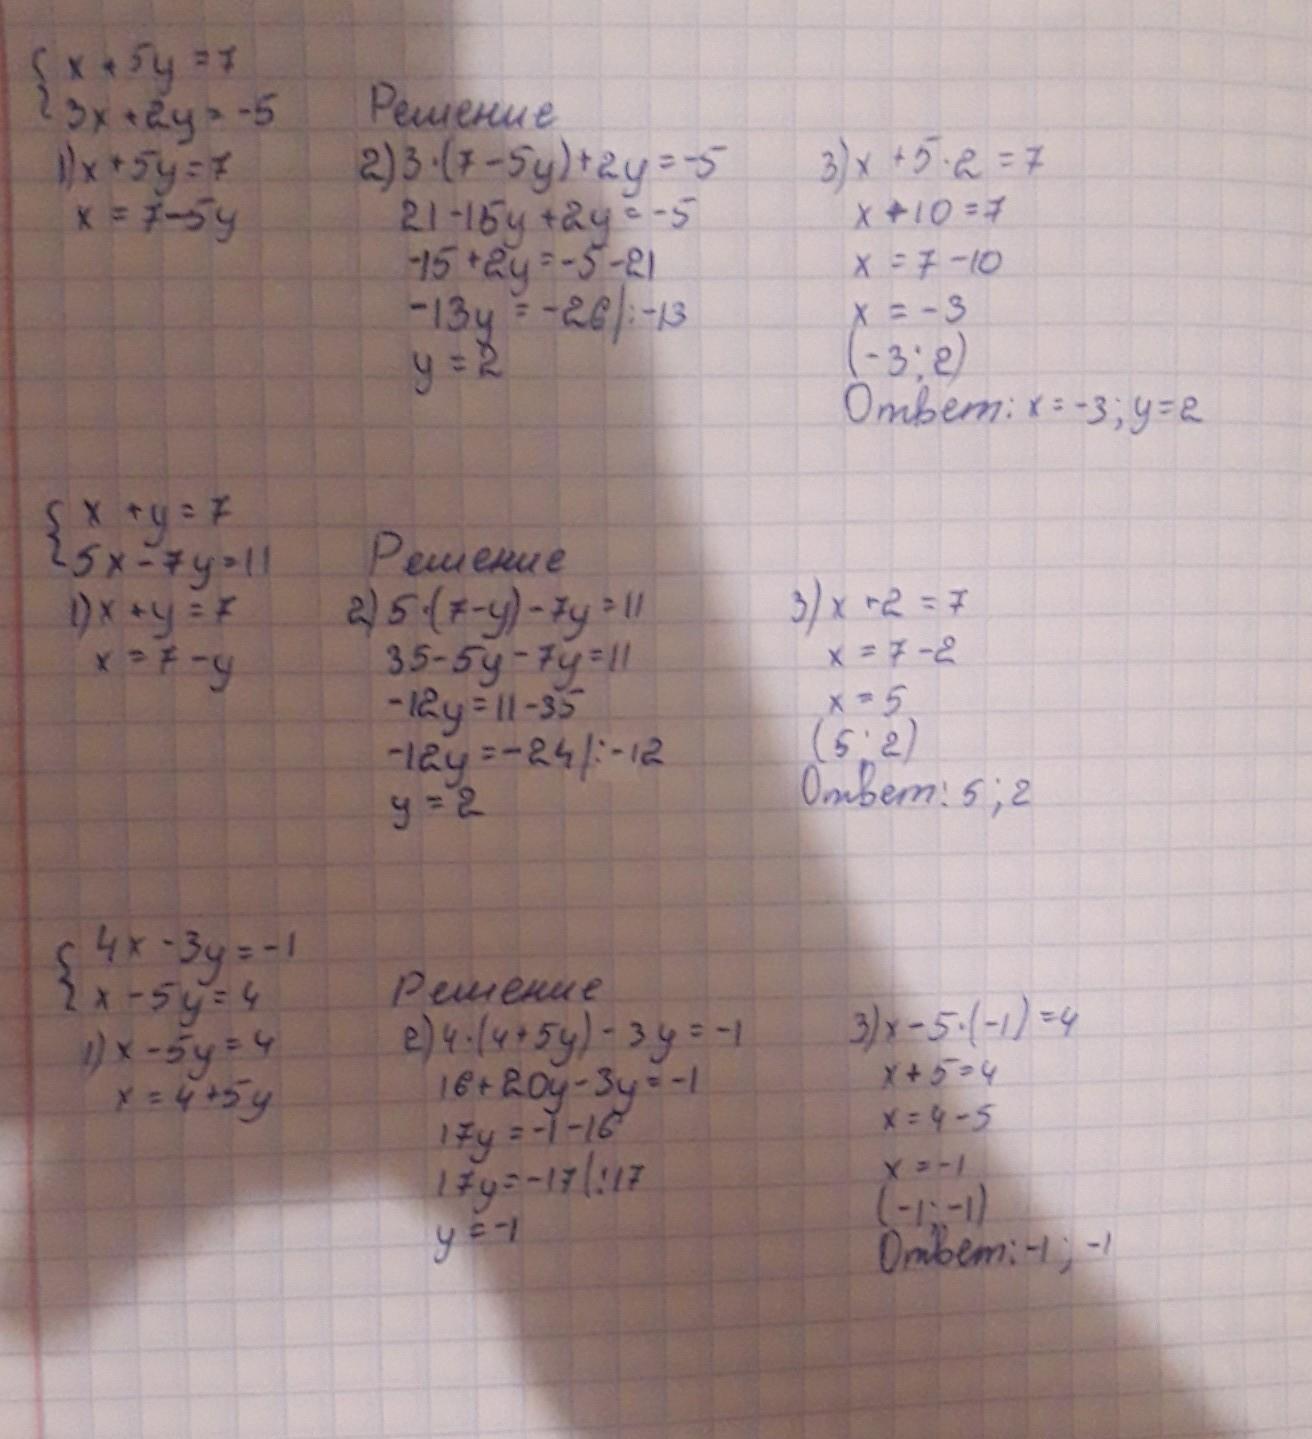 x + 5y = 7
3x + 2y = -5
Решение
1) x + 5y = 7
x = 7 - 5y
2) 3·(7 - 5y) + 2y = -5
21 - 15y + 2y = -5
-15 + 2y = -5 - 21
-13y = -26 |: -13
y = 2
3) x + 5·2 = 7
x + 10 = 7
x = 7 - 10
x = -3
(-3; 2)
Ответ: x = -3; y = 2
x + y = 7
5x - 7y = 11
Решение
1) x + y = 7
x = 7 - y
2) 5·(7 - y) - 7y = 11
35 - 5y - 7y = 11
-12y = 11 - 35
-12y = -24 |: -12
y = 2
3) x + 2 = 7
x = 7 - 2
x = 5
(5; 2)
Ответ: 5; 2
4x - 3y = -1
x - 5y = 4
Решение
1) x - 5y = 4
x = 4 + 5y
2) 4·(4 + 5y) - 3y = -1
16 + 20y - 3y = -1
17y = -1 - 16
17y = -17 |: 17
y = -1
3) x - 5·(-1) = 4
x + 5 = 4
x = 4 - 5
x = -1
(-1; -1)
Ответ: -1; -1